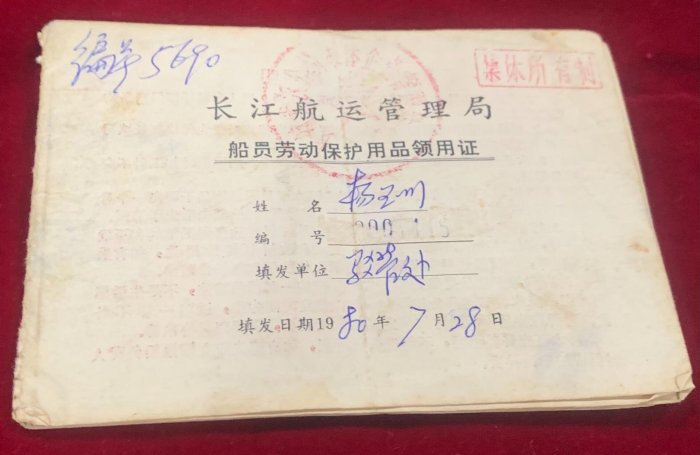 编号5690
集体所有制
长江航运管理局
船员劳动保护用品领用证
姓名 杨玉川
编号
填发单位
填发日期1980年7月28日